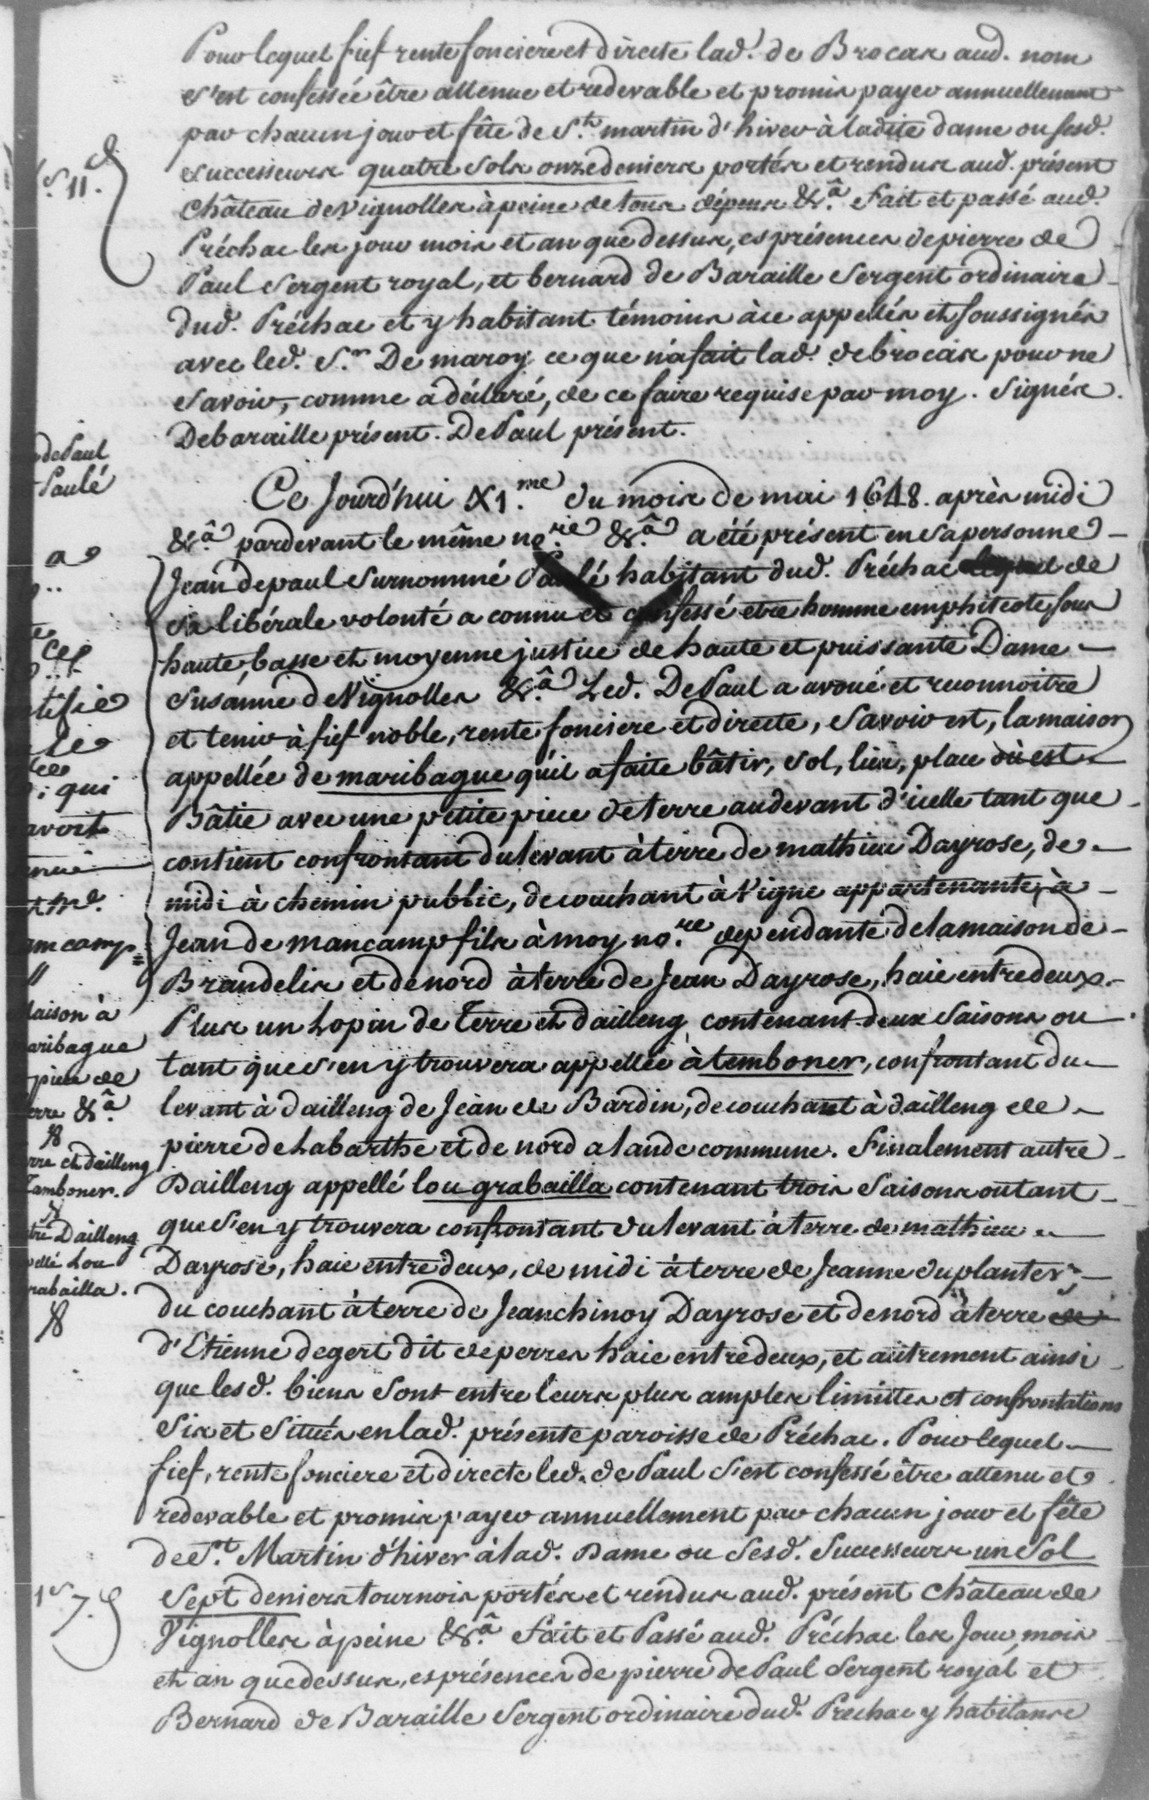 Pour lequel fief rente fonciere et directe lad. de Brocas aud. nom
s'est confessée être attenue et redevable et promis payer annuellement
par chacun jour et fête de St. martin d'hiver à ladite dame ou sesd.
successeurs quatre sols onze deniers portés et rendus aud. présent
Château de Vignolles à peine de tous dépens &a. Fait et passé aud.
Préchac les jour mois et an que dessus, es présences de pierre de
Paul sergent royal, et bernard de Baraille Sergent ordinaire
dud. Préchac et y habitant témoins à ce appellés et soussignés
avec led. Sr. De maroy ce que n'a fait lad. de brocas pour ne
savoir, comme a déclaré, de ce faire requise par moy. Signés.
Debaraille présent. De Paul présent.
s. 11. d
de Paul
Paulé
Ce Jourd'hui XI.me du mois de mai 1648. après midi
&a. pardevant le même no.rie &a. a été présent en sa personne
Jean de paul surnommé Paulé habitant dud. Préchac de
sa libérale volonté a connu et confessé etre homme emphiteote sous
haute, basse et moyenne justice de haute et puissante Dame
Susanne de Vignolles &a. Led. De Paul a avoué et reconnoitre
et tenir à fief noble, rente fonciere et directe, savoir est, la maison
appellée de maribague qu'il a faite bâtir, sol, lieu, place où est
Bâtie avec une petite piece de terre audevant d'icelle tant que
contient confrontant du levant à terre de mathieu Dayrose, de
midi à chemin public, de couchant à Vigne appartenante à
Jean de mancamp fils à moy no.re dependante de la maison de
Brandelis et de nord à terre de Jean Dayrose, haie entredeux.
Plus un Lopin de Terre et dailleng contenant deux saisons ou
tant que s'en y trouvera appellée à temboner, confrontant du
levant à dailleng de Jean de Bardin, de couchant à dailleng de
pierre de Labarthe et de nord a lande commune. Finalement autre
Dailleng appellé lou grabailla contenant trois saisons ou tant
que s'en y trouvera confrontant du levant à terre de mathieu
Dayrose, haie entredeux, de midi à terre de Jeanne duplanter,
du couchant à terre de Jeanchinoy Dayrose et de nord à terre de
d'Etienne degert dit de perres haie entredeux, et autrement ainsi
que lesd. biens sont entre leurs plus amples limittes et confrontations
Sis et situés en lad. présente paroisse de Préchac. Pour lequel
fief, rente fonciere et directe led. de Paul s'est confessé être attenu et
redevable et promis payer annuellement par chacun jour et fête
de St. Martin d'hiver à lad. Dame ou sesd. successeurs un Sol
sept deniers tournois portés et rendus aud. présent château de
Vignolles à peine &a. Fait et Passé aud. Préchac les Jour, mois
et an que dessus, es présences de pierre de Paul Sergent royal et
Bernard de Baraille Sergent ordinaire dud. Préchac y habitans
qui
avort
camp
Maison à
maribague
piece de
terre &a
terre et dailleng
Tamboner.
autre Dailleng
appellé Lou
grabailla.
1 s 7. d